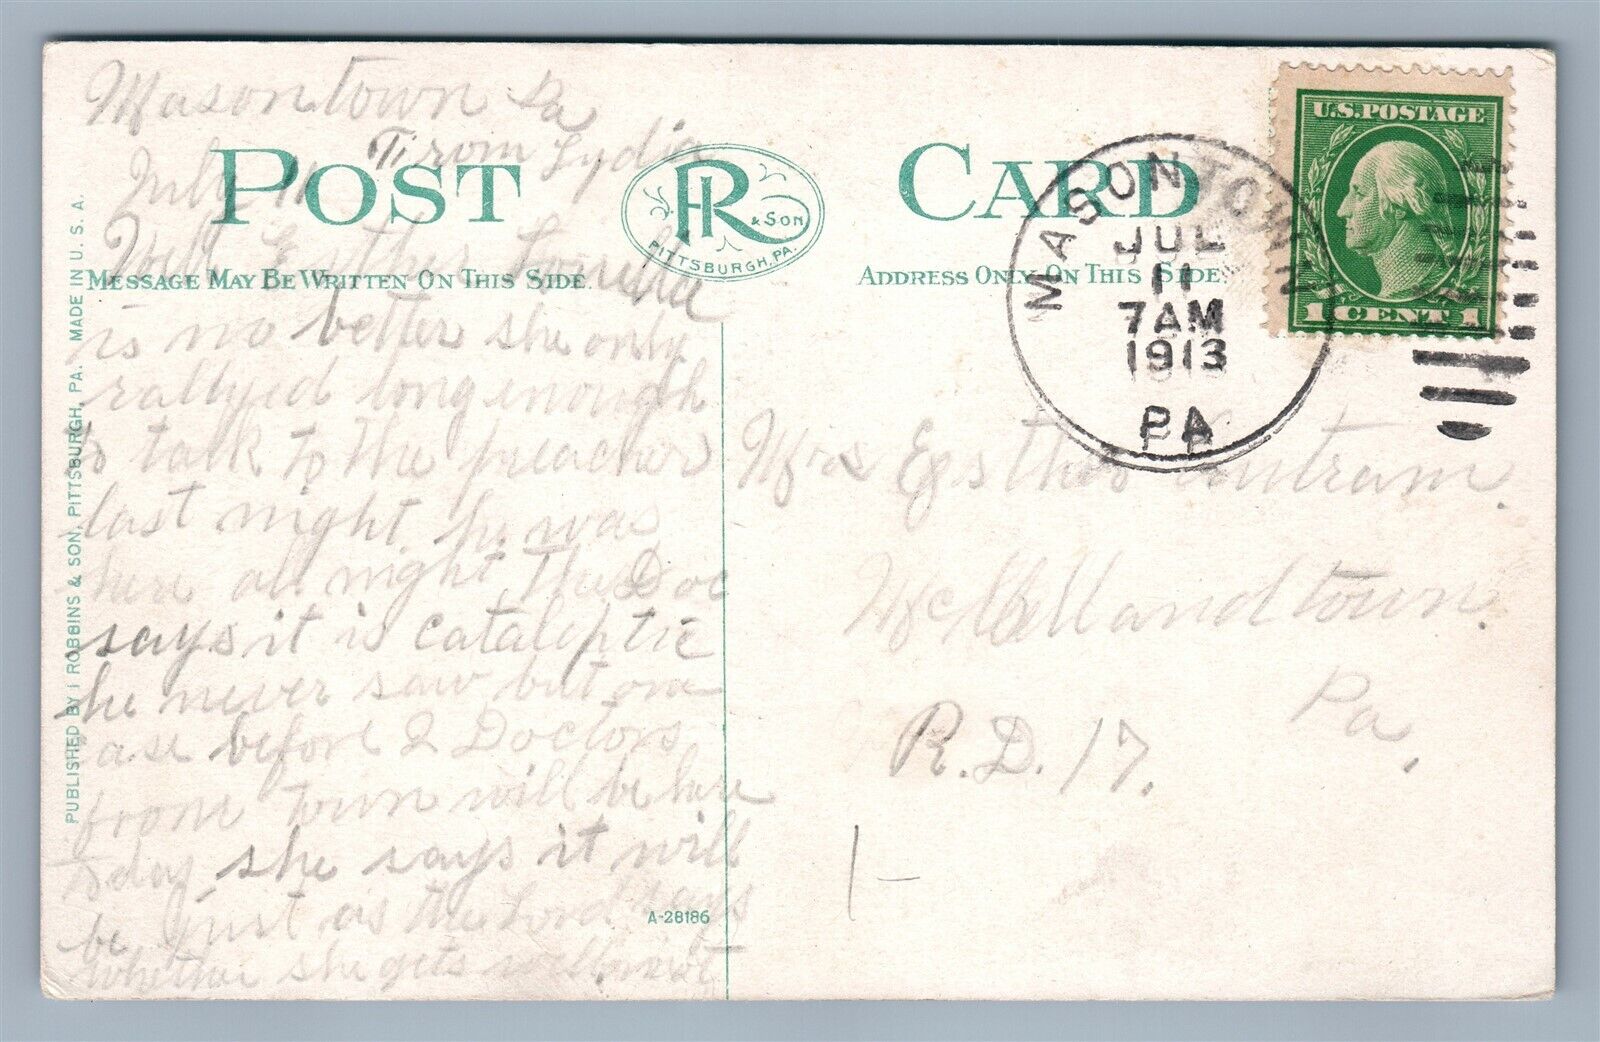 Masontown Pa
From Lydia
July 11
POST CARD
R & SON
PITTSBURGH, PA.
Well Esther Louella
MESSAGE MAY BE WRITTEN ON THIS SIDE.
ADDRESS ONLY ON THIS SIDE.
is no better she only
rallyed long enough
to talk to the preacher
last night he was
here all night The Doc
says it is cataloptic
he never saw but one
case before 2 Doctors
from town will be here
today she says it will
be just as the Lord says
whether she gets well or not
A-28186
PUBLISHED BY I ROBBINS & SON, PITTSBURGH, PA. MADE IN U. S. A.
U.S. POSTAGE
1 CENT 1
MASONTOWN
JUL
11
7 AM
1913
PA
Mrs Esther Antram.
McClellandtown.
Pa.
R.D. 17.
1-